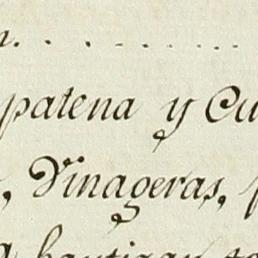 n. . . . . . . .
patena y Cu
, Vinageras,
bautizar